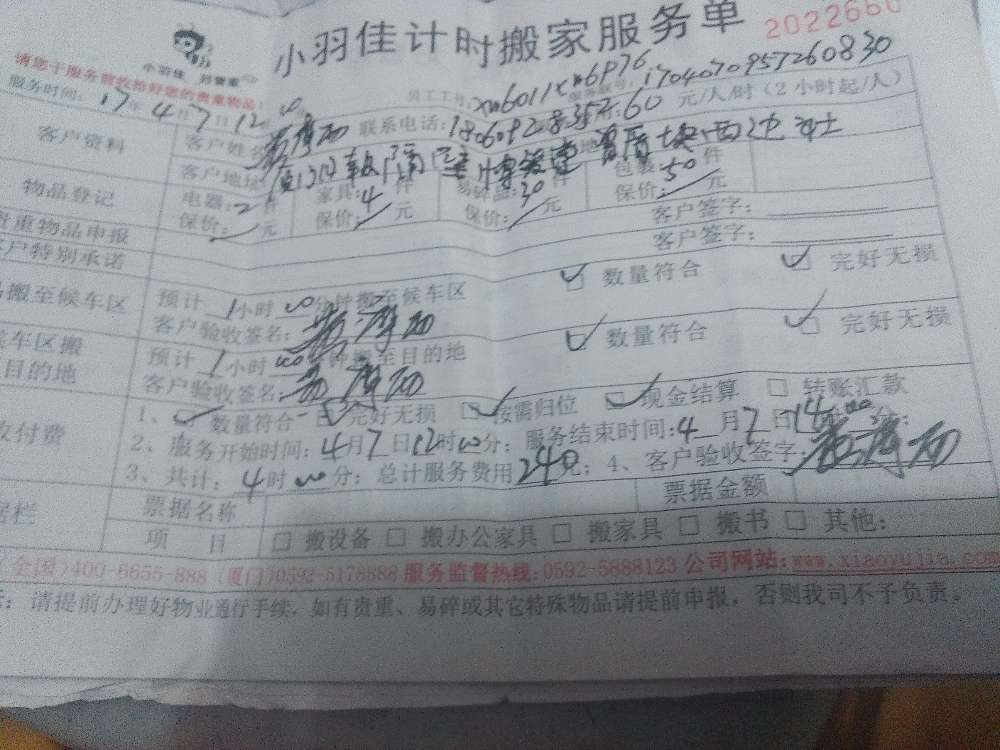 小羽佳计时搬家服务单
2022660
小羽佳
请您于服务前收拾好您的贵重物品!
员工工号: xm6011 xm6976 服务账号: 1704070957260830
服务时间: 17年4月7日12 00
客户资料 客户姓名 联系电话: 18609283 60 元/人/时(2小时起/人)
客户地址: 厦门
物品登记 电器: 2件 家具: 4件 易碎品: 30件 包装: 50件
保价: /元 保价: /元 保价: /元 保价: /元
贵重物品申报 客户签字:
客户特别承诺 客户签字:
搬至候车区 预计1小时00分钟搬至候车区 数量符合 完好无损
客户验收签名:
车区搬 目的地 预计1小时00分钟搬至目的地 数量符合 完好无损
客户验收签名:
收付费 1、数量符合 完好无损 按需归位 现金结算 转账汇款
2、服务开始时间: 4月7日12时00分; 服务结束时间: 4月7日14时00分;
3、共计: 4时00分; 总计服务费用240元; 4、客户验收签字:
票据名称 票据金额
项目 搬设备 搬办公家具 搬家具 搬书 其他:
(全国)400-6655-888 (厦门)0592-5178888 服务监督热线:0592-5888123 公司网站:www.xiaoyujia.com
: 请提前办理好物业通行手续,如有贵重、易碎或其它特殊物品请提前申报,否则我司不予负责。